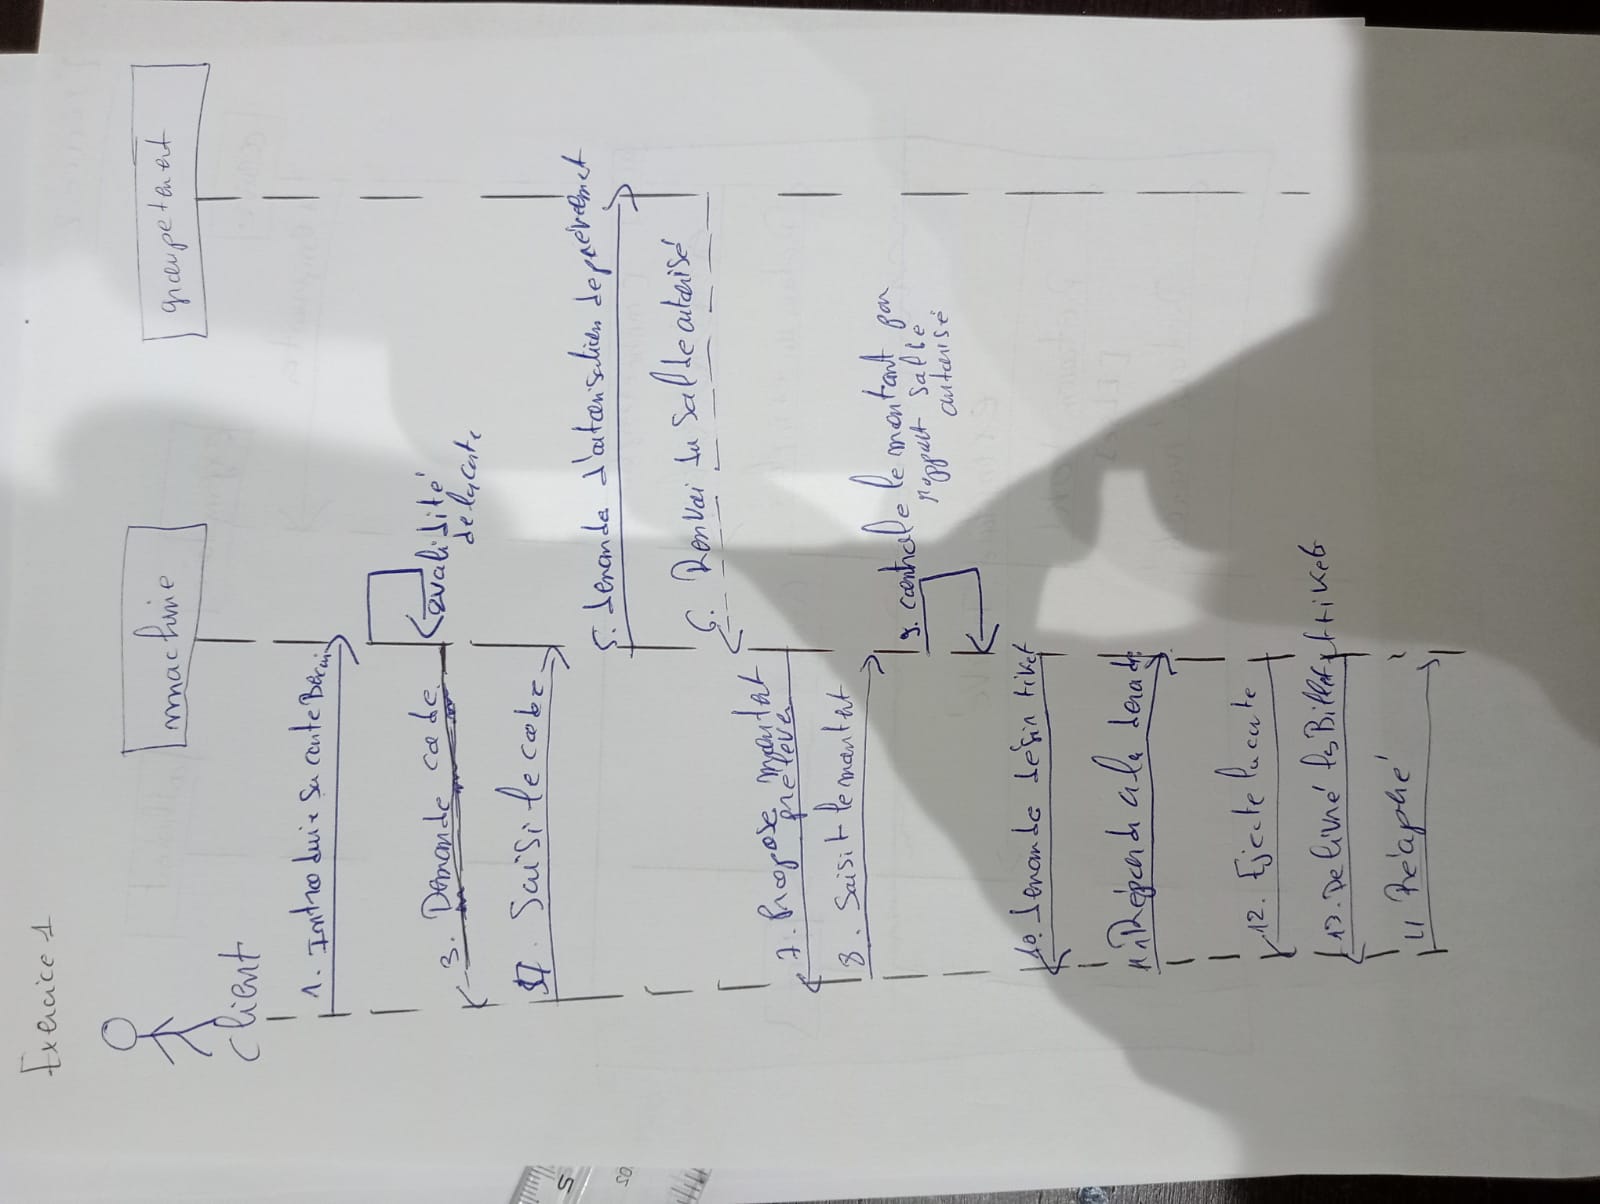 Exercice 1
Client
machine
groupement
1. Introduire sa carte
validité
de la carte
3. Demande code
Saisi le code
5. demande d'autorisation de prévèmet
6. Renvai du Salde autorisé
7. Propose montant
prélever
8. Saisit le montant
9. contrôle le montant par
rapport Salbe
autorisé
10. demande désir tiket
11. Répond a la demade
12. Ejecte la carte
13. Délivré les Billet et tiket